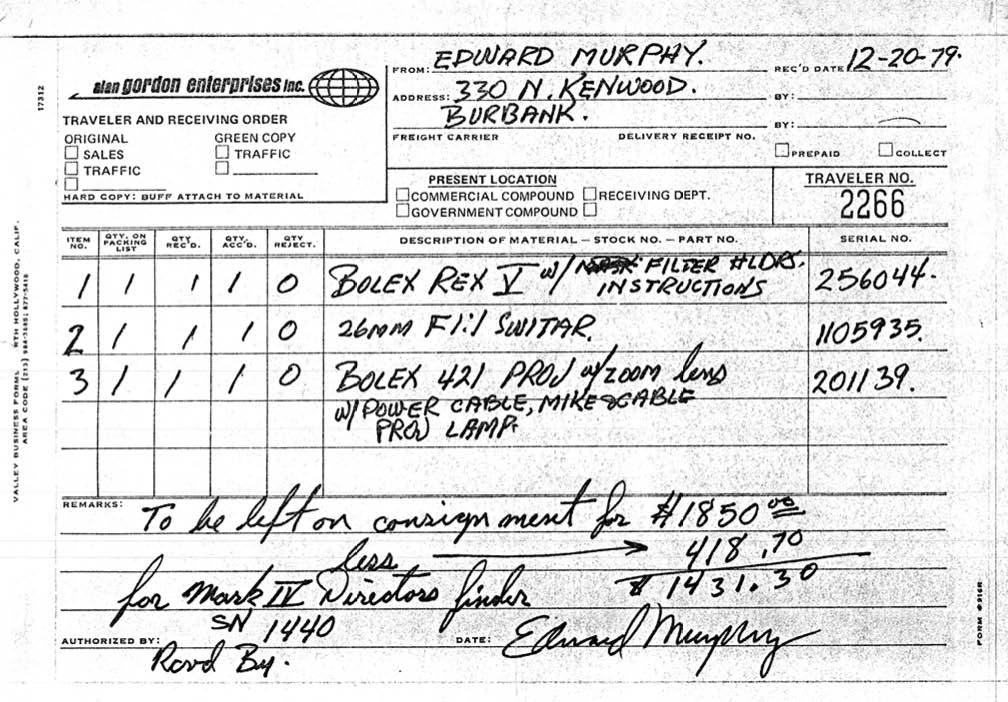 EDWARD MURPHY.
FROM:
REC'D DATE 12-20-79.
alan gordon enterprises inc.
ADDRESS: 330 N. KENWOOD.
BY:
BURBANK.
BY:
TRAVELER AND RECEIVING ORDER
FREIGHT CARRIER DELIVERY RECEIPT NO.
ORIGINAL GREEN COPY
SALES TRAFFIC
TRAFFIC
PREPAID COLLECT
HARD COPY: BUFF ATTACH TO MATERIAL
PRESENT LOCATION
COMMERCIAL COMPOUND RECEIVING DEPT.
GOVERNMENT COMPOUND
TRAVELER NO.
2266
ITEM NO. QTY. ON PACKING LIST QTY REC'D. QTY. ACC'D. QTY REJECT. DESCRIPTION OF MATERIAL — STOCK NO. — PART NO. SERIAL NO.
1 1 1 1 0 BOLEX REX V w/ FILTER HLDRS. 256044.
INSTRUCTIONS
2 1 1 1 0 26mm F1:1 SWITAR. 1105935.
3 1 1 1 0 BOLEX 421 PROJ w/ZOOM lens 201139.
w/POWER CABLE, MIKE & CABLE
PROJ LAMP.
REMARKS: To be left on consignment for $1850.00
less → 418.70
for Mark IV Directors finder $1431.30
SN 1440
AUTHORIZED BY: DATE: Edward Murphy
Rcvd By.
17312
VALLEY BUSINESS FORMS NTH HOLLYWOOD, CALIF.
AREA CODE (213)
FORM